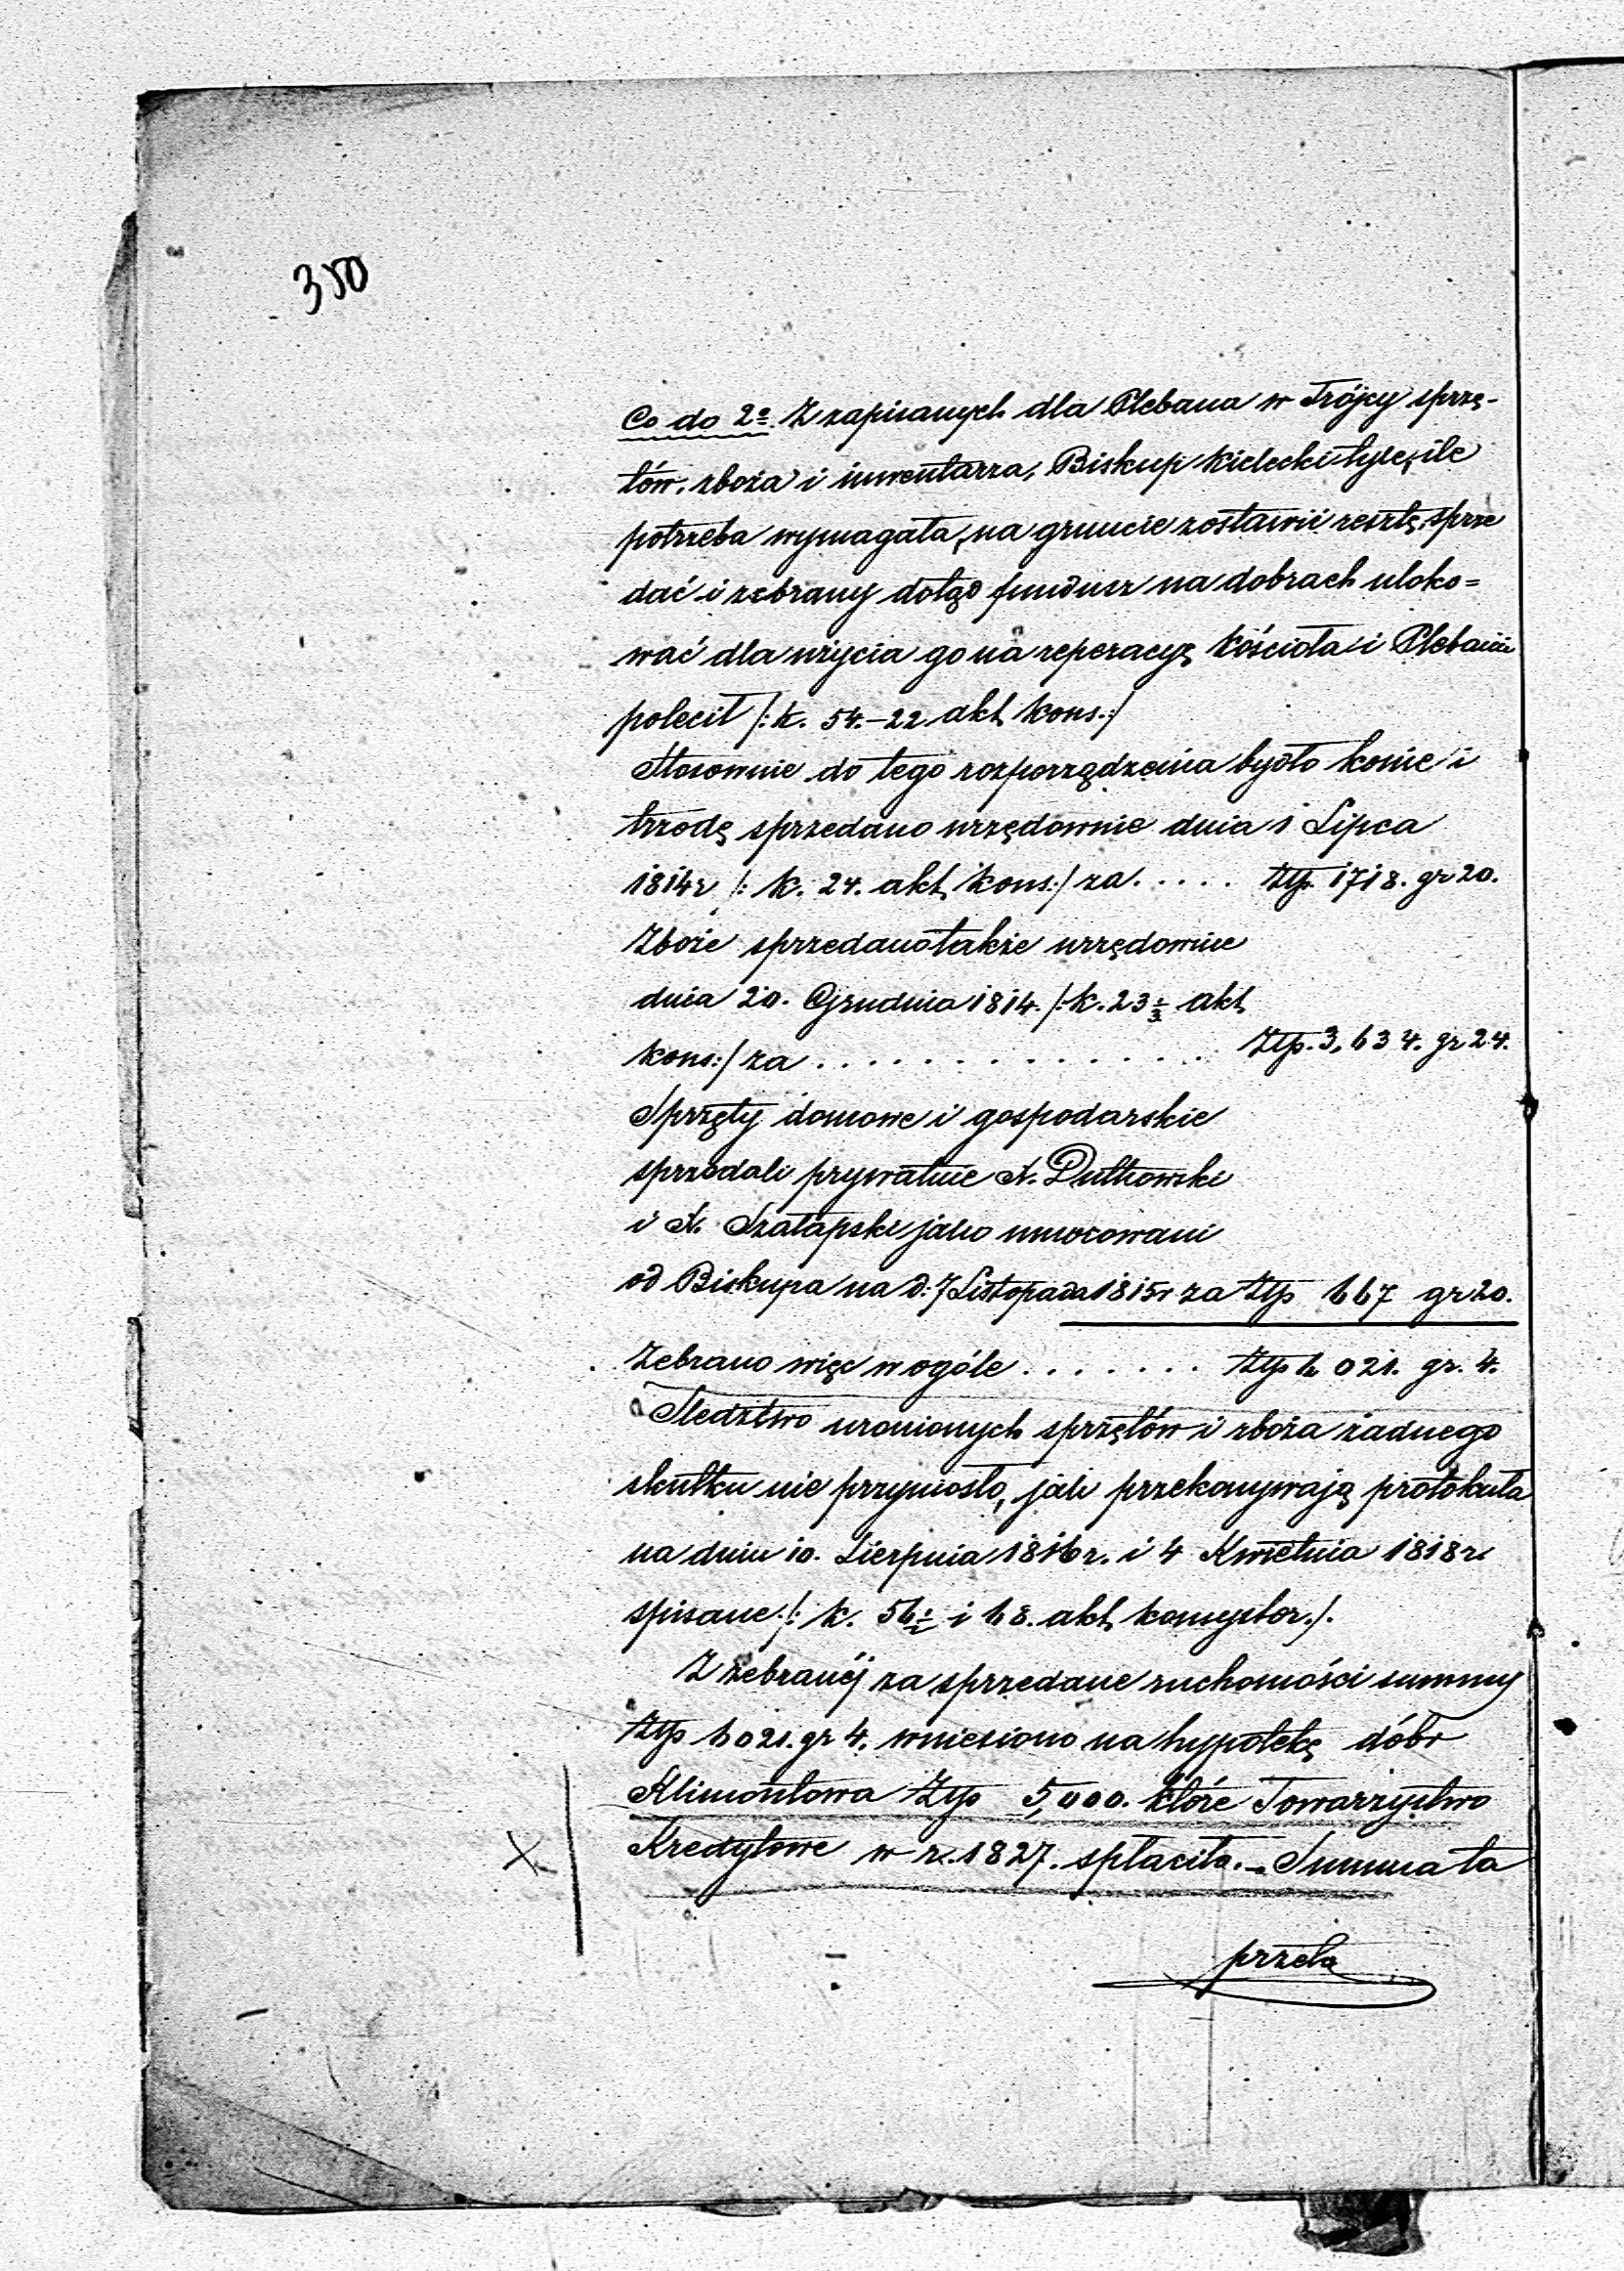 350
Co do 2o. Z zapisanych dla Plebana w Trójcy sprzę-
tów, zboża i inwentarza, Biskup Kielecki tyle, ile
potrzeba wymagała, na gruncie zostawić resztę sprze
dać i zebrany dotąd fundusz na dobrach uloko=
wać dla użycia go na reperacyę Kościoła i Plebanii
polecił /: k. 54.-22 akt kons.:/
Stosownie do tego rozporządzenia bydło konie i
trzodę sprzedano urzędownie dnia 1 Lipca
1814r /: k. 24. akt kons:/ za..... Złp. 1718. gr 20.
Zboże sprzedano także urzędownie
dnia 20. Grudnia 1814. /: k. 23 akt
kons:/ za............... Złp. 3,634. gr 24.
Sprzęty domowe i gospodarskie
sprzedali prywatnie X. Dutkowski
i X. Szałapski jako umocowani
od Biskupa na d: 7 Listopada 1815r za Złp 667 gr 20.
Zebrano więc w ogóle....... Złp 6 021. gr. 4.
Śledztwo uronionych sprzętów i zboża żadnego
skutku nie przyniosło, jak przekonywają protokuła
na dniu 10. Sierpnia 1816r. i 4 Kwietnia 1818r.
spisane /: k. 56 i 68. akt konsystor./.
Z zebranéj za sprzedane ruchomości summy
Złp 6021. gr 4, wniesiono na hypotekę dóbr
Klimontowa Złp 5,000. które Towarzystwo
Kredytowe w r. 1827. spłaciło.- Summa ta
X
przela